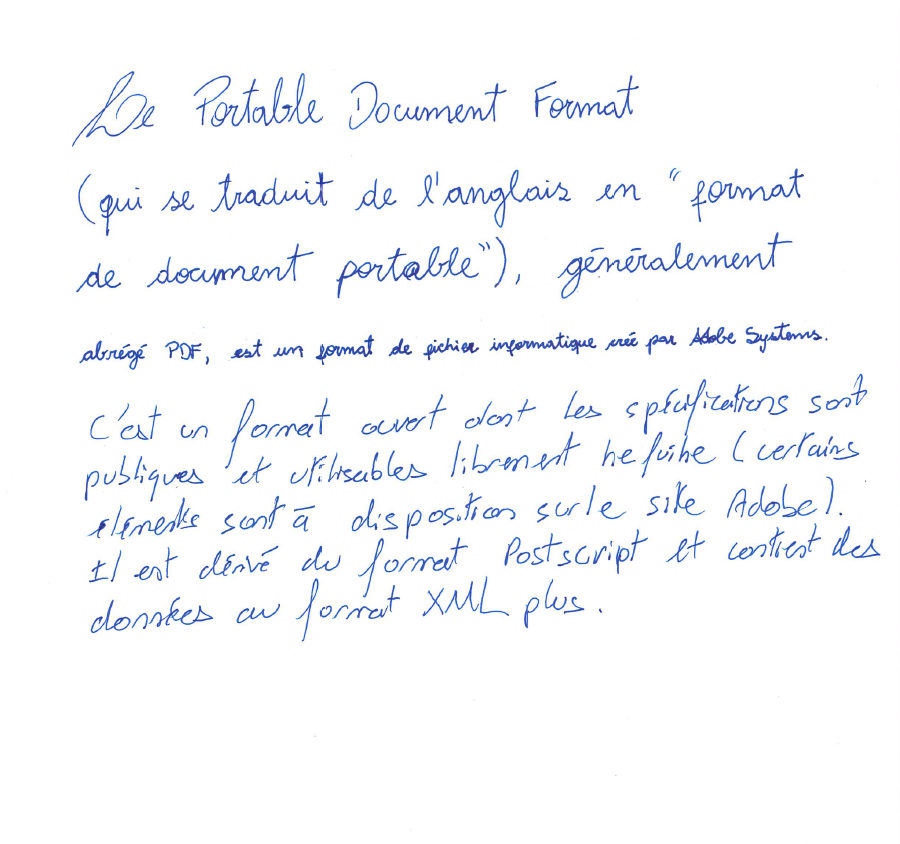 Le Portable Document Format
(qui se traduit de l'anglais en "format
de document portable"), généralement
abrégé PDF, est un format de fichier informatique créé par Adobe Systems.
C'est un format ouvert dont les spécifications sont
publiques et utilisables librement (certains
éléments sont à disposition sur le site Adobe).
Il est dérivé du format Postscript et contient des
données au format XML plus.